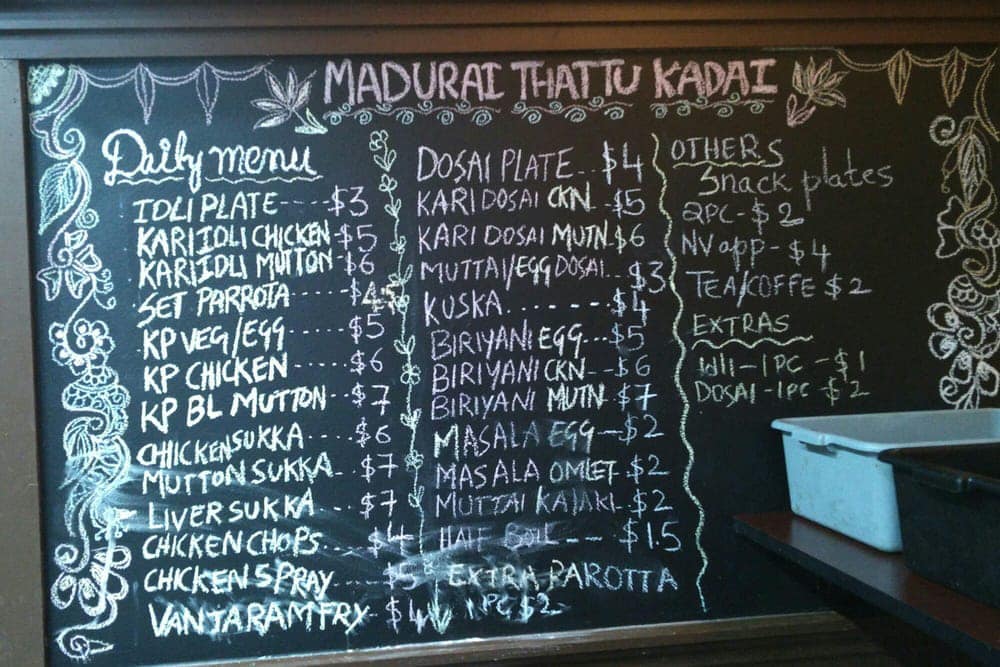 MADURAI THATTU KADAI
Daily menu
IDLI PLATE---- $3
KARI IDLI CHICKEN-$5
KARI IDLI MUTTON-$6
SET PARROTA ---- $4.5
KP VEG/EGG ----- $5
KP CHICKEN ---- $6
KP BL MUTTON -- $7
CHICKEN SUKKA ---- $6
MUTTON SUKKA -- $7
LIVER SUKKA --- $7
CHICKEN CHOPS --- $4
CHICKEN SPRAY ---- $5
VANJARAM FRY - $4
DOSAI PLATE -- $4
KARI DOSAI CKN -- $5
KARI DOSAI MUTN $6
MUTTAI/EGG DOSAI -- $3
KUSKA ------- $4
BIRIYANI EGG --- $5
BIRIYANI CKN -- $6
BIRIYANI MUTN - $7
MASALA EGG -- $2
MASALA OMLET - $2
MUTTAI KALAKI - $2
HALF BOIL -- $1.5
EXTRA PAROTTA
1PC $2
OTHERS
Snack plates
QPC - $2
NV app - $4
TEA/COFFE $2
EXTRAS
idli - 1 PC - $1
DOSAI - 1PC - $2